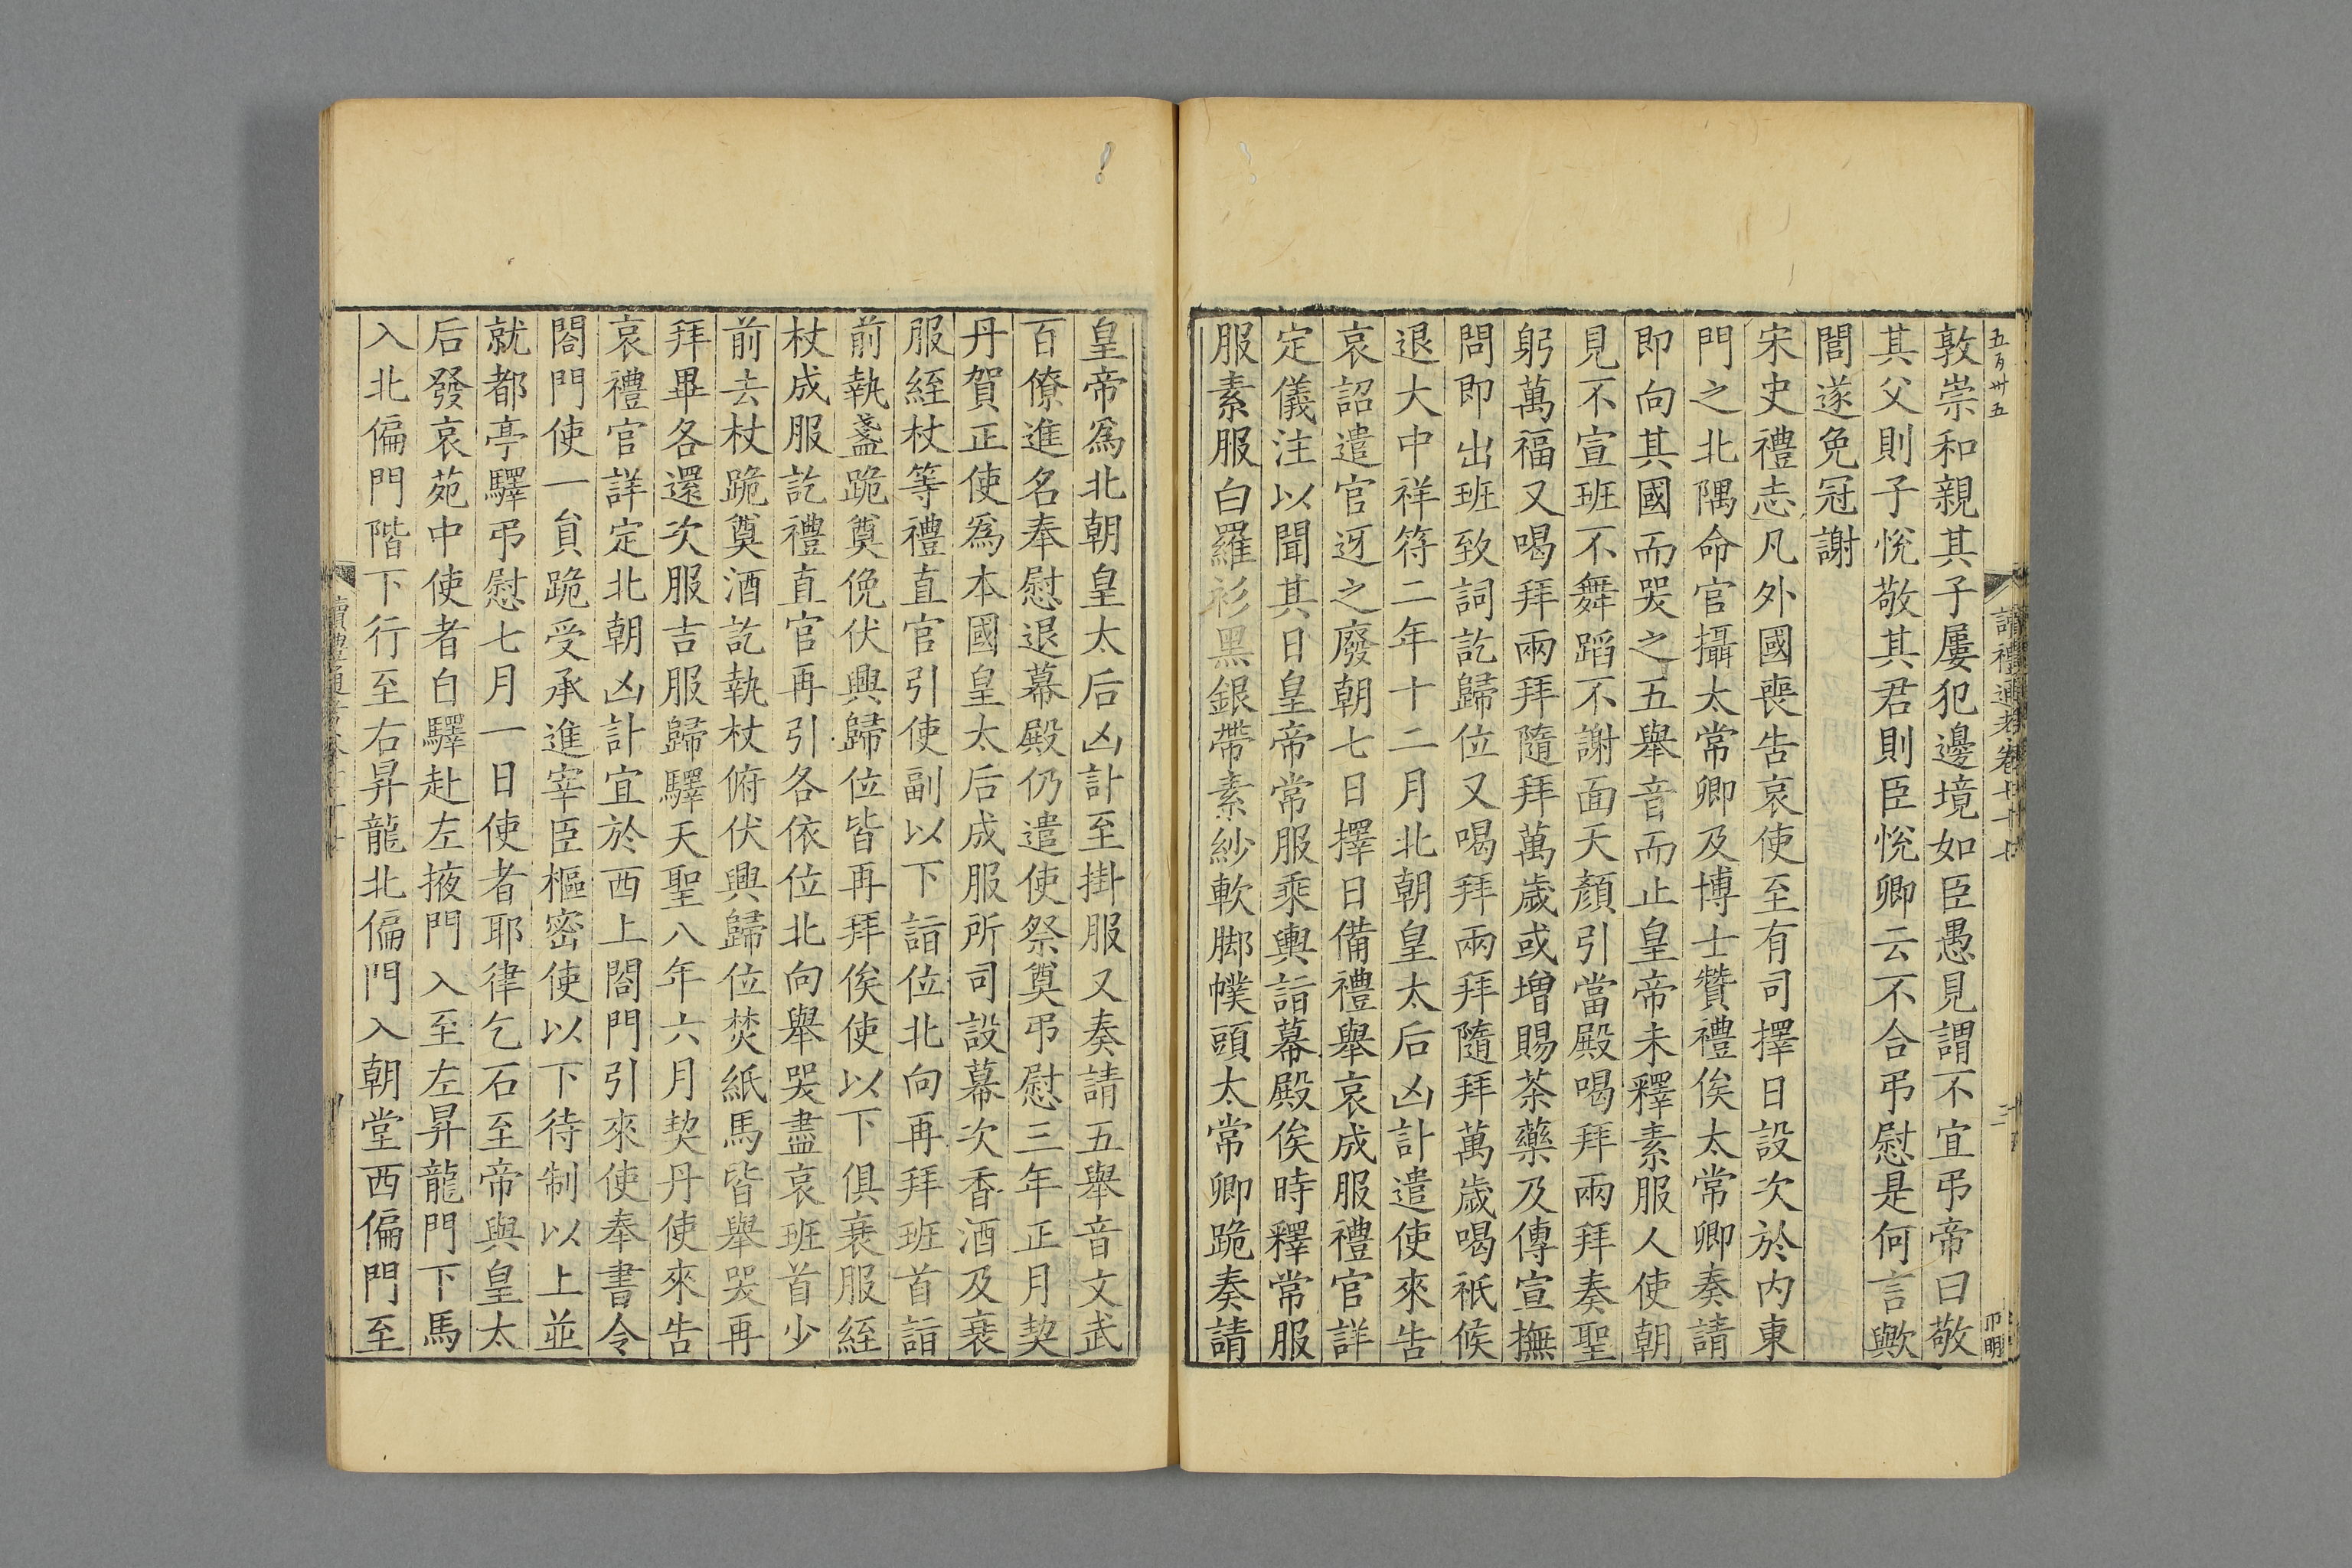 五百卅五
讀禮通考卷七十七
敦崇和親其子屢犯邊境如臣愚見謂不宜弔帝曰敬
其父則子悅敬其君則臣悅卿云不合弔慰是何言歟
誾遂免冠謝
宋史禮志凡外國喪告哀使至有司擇日設次於內東
門之北隅命官攝太常卿及博士贊禮俟太常卿奏請
即向其國而哭之五舉音而止皇帝未釋素服人使朝
見不宣班不舞蹈不謝面天顏引當殿喝拜兩拜奏聖
躬萬福又喝拜兩拜隨拜萬歲或增賜茶藥及傳宣撫
問即出班致詞訖歸位又喝拜兩拜隨拜萬歲喝祗候
退大中祥符二年十二月北朝皇太后凶訃遣使來告
哀詔遣官迓之廢朝七日擇日備禮舉哀成服禮官詳
定儀注以聞其日皇帝常服乘輿詣幕殿俟時釋常服
服素服白羅衫黑銀帶素紗軟脚幞頭太常卿跪奏請
皇帝爲北朝皇太后凶訃至掛服又奏請五舉音文武
百僚進名奉慰退幕殿仍遣使祭奠弔慰三年正月契
丹賀正使爲本國皇太后成服所司設幕次香酒及衰
服絰杖等禮直官引使副以下詣位北向再拜班首詣
前執盞跪奠俛伏興歸位皆再拜俟使以下俱衰服絰
杖成服訖禮直官再引各依位北向舉哭盡哀班首少
前去杖跪奠酒訖執杖俯伏興歸位焚紙馬皆舉哭再
拜畢各還次服吉服歸驛天聖八年六月契丹使來告
哀禮官詳定北朝凶訃宜於西上閤門引來使奉書令
閤門使一員跪受承進宰臣樞密使以下待制以上並
就都亭驛弔慰七月一日使者耶律乞石至帝與皇太
后發哀苑中使者自驛赴左掖門入至左昇龍門下馬
入北偏門階下行至右昇龍北偏門入朝堂西偏門至